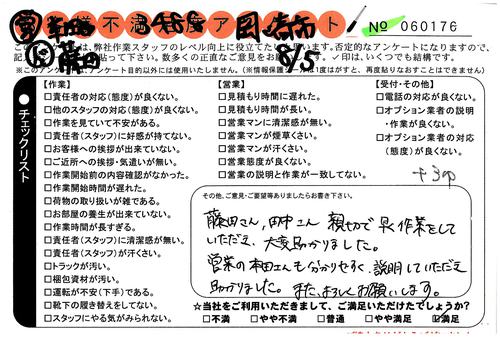 様不満足度アンケート
岡崎市
No 060176
8/5
藤田
このアンケートは、弊社作業スタッフのレベル向上に役立てたい
思います。否定的なアンケートになりますので、
数多くの正直なご意見をお
✓印は、いくつでも結構です。
※このアンケート
目的以外には一切使用いたしません。
チェックリスト
【作業】
□責任者の対応(態度)が良くない。
□他のスタッフの対応(態度)が良くない。
□作業を見ていて不安がある。
□責任者(スタッフ)に好感が持てない。
□お客様への挨拶が出来ていない。
□ご近所への挨拶・気遣いが無い。
□作業開始前の内容確認がなかった。
□作業開始時間が遅れた。
□荷物の取り扱いが雑である。
□お部屋の養生が出来ていない。
□作業時間が長すぎる。
□責任者(スタッフ)に清潔感が無い。
□責任者(スタッフ)が汗くさい。
□トラックが汚い。
□梱包資材が汚い。
□運転が不安(下手)である。
□靴下の履き替えをしてない。
□スタッフにやる気がみられない。
【営業】
□見積もり時間に遅れた。
□見積もり時間が長い。
□営業マンに清潔感が無い。
□営業マンが煙草くさい。
□営業マンが汗くさい。
□営業態度が良くない。
□営業の説明と作業が一致してない。
【受付・その他】
□電話の対応が良くない。
□オプション業者の説明
・作業が良くない。
□オプション業者の対応
(態度)が良くない。
その他、ご意見・ご要望等ありましたらお書き下さい。
藤田さん,田中さん 親切で早く作業をして
いただき 大変助かりました。
営業の本田さんも分かりやすく、説明していただき
助かりました。また、よろしくお願いします。
☆当社をご利用いただきまして、ご満足いただけたでしょうか?
□不満 □やや不満 □普通 □やや満足 ☑満足